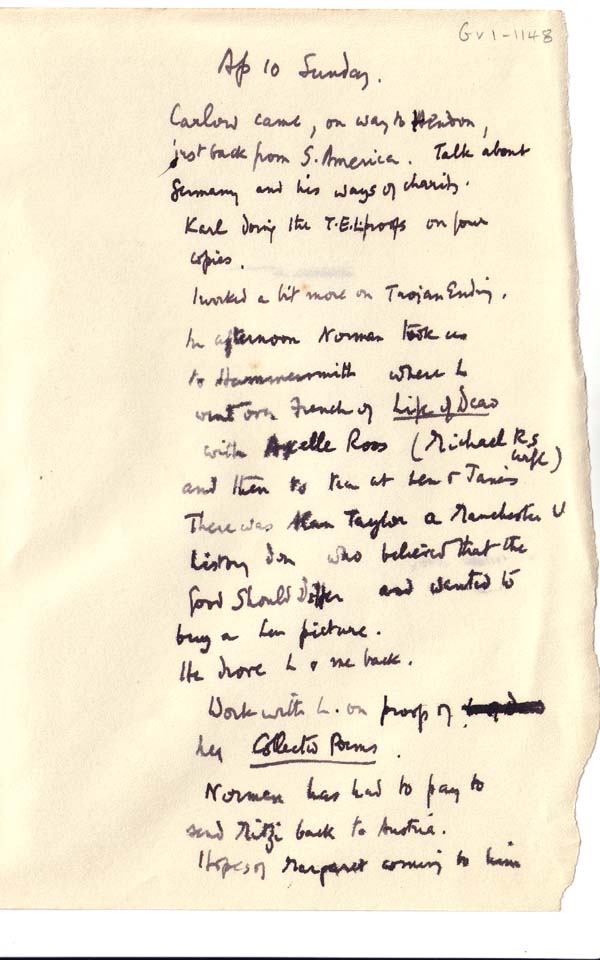 GV1-1148
Ap 10 Sunday.
Carlow came, on way to Hendon,
just back from S. America. Talk about
Germany and his ways of charity.
Karl doing the T.E.L. proofs on four
copies.
I worked a bit more on Trojan Ending.
In afternoon Norman took us
to Hammersmith where L
went over French of Life of Dead
with Axelle Roos (Michael Rs
wife)
and then to tea at Len & Janes
There was Alan Taylor a Manchester U
history don who believed that the
Good Should Differ and wanted to
buy a Len picture.
He drove L & me back.
Work with L. on proof of
her Collected Poems.
Norman has had to pay to
send Mitzi back to Austria.
Hopes of Margaret coming to him